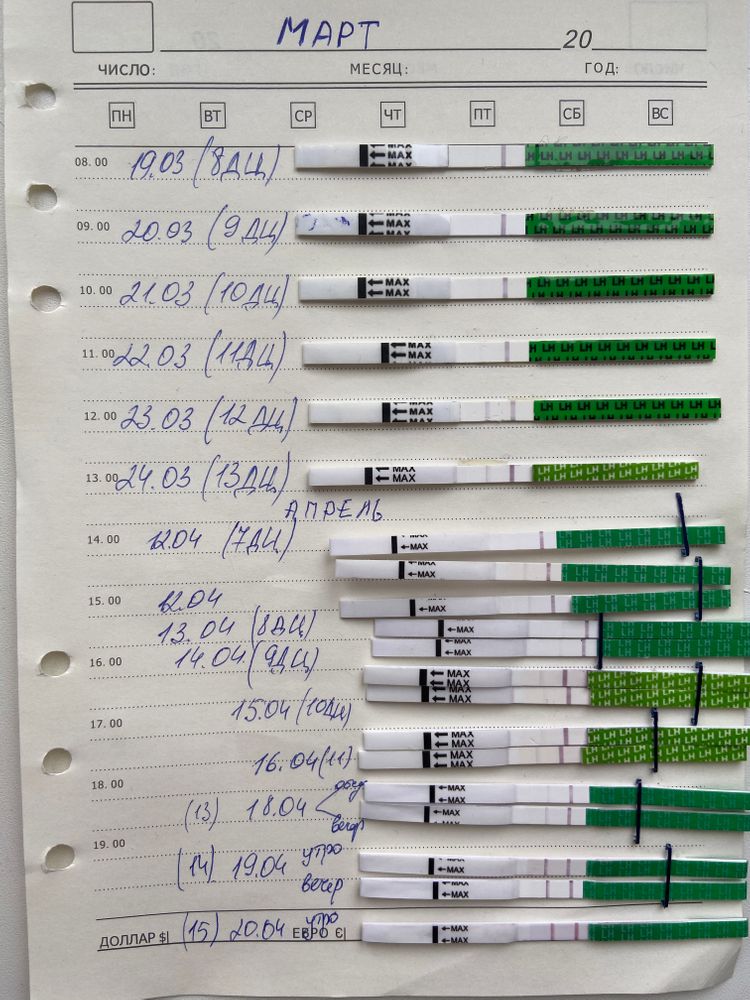 МАРТ
20
ЧИСЛО: МЕСЯЦ: ГОД:
ПН ВТ СР ЧТ ПТ СБ ВС
08.00 19.03 (8ДЦ) MAX MAX LH LH LH LH LH LH
09.00 20.03 (9ДЦ) MAX MAX LH LH LH LH LH LH
10.00 21.03 (10ДЦ) MAX MAX LH LH LH LH LH LH
11.00 22.03 (11ДЦ) MAX MAX LH LH LH LH LH LH
12.00 23.03 (12ДЦ) MAX MAX LH LH LH LH LH LH
13.00 24.03 (13ДЦ) MAX MAX LH LH LH LH LH LH
АПРЕЛЬ
14.00 12.04 (7ДЦ) MAX LH LH LH LH
MAX LH LH LH LH
15.00 12.04 MAX LH LH LH LH
13.04 (8ДЦ) MAX LH LH LH LH
16.00 14.04 (9ДЦ) MAX LH LH LH LH
MAX MAX LH LH LH LH
15.04 (10ДЦ) MAX LH LH LH LH
17.00 MAX MAX LH LH LH LH
16.04 (11) MAX MAX LH LH LH LH
18.00 MAX LH LH LH LH
(13) 18.04 MAX LH LH LH LH
19.00
(14) 19.04 утро MAX LH LH LH LH
вечер MAX LH LH LH LH
ДОЛЛАР $| (15) 20.04 ЕВРО Є| утро MAX MAX LH LH LH LH